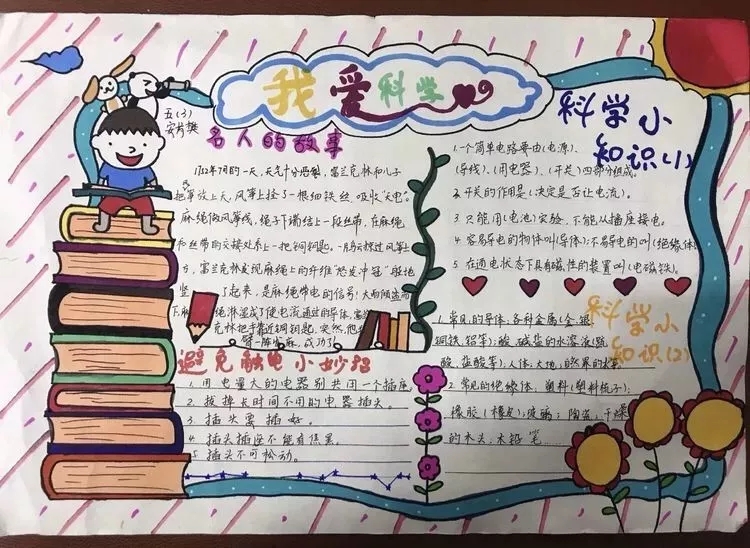 我爱科学
五(3)
名人的故事
1752年7月的一天,天气十分闷热,富兰克林和儿子
把风筝放上天,风筝上拴了一根细铁丝,吸收"天电"。
麻绳做风筝线,绳子下端结上一段丝带,在麻绳
和丝带的交接处系上一把铜钥匙。一片乌云掠过风筝上
方,富兰克林发现麻绳上的纤维"怒发冲冠"般地
竖了起来,是麻绳带电的信号!大雨倾盆而
下,麻绳淋湿
克林把手靠近铜钥匙,突然,他
臂一阵发麻,成功了
避免触电小妙招
1. 用电量大的电器别共用一个插座
2. 拔掉长时间不用的电器插头。
3. 插头要插好。
4. 插头插座不能有焦黑。
5. 插头不可松动。
科学小
知识(1)
1.一个简单电路要由(电源)、
(导线)、(用电器)、(开关)四部分组成。
2.开关的作用是(决定是否让电流)。
3.只能用(电池)实验,不能从插座接电。
4.容易导电的物体叫(导体);不易导电的叫(绝缘体)
5.在通电状态下具有磁性的装置叫(电磁铁)。
科学小
知识(2)
1.常见的导体:各种金属(金、银、
铜、铁、铝等);酸、碱、盐的水溶液(硫
酸、盐酸等);人体、大地、
2.常见的绝缘体:塑料(塑料梳子);
橡胶(橡皮);玻璃;陶瓷;干燥
的木头、木铅笔……